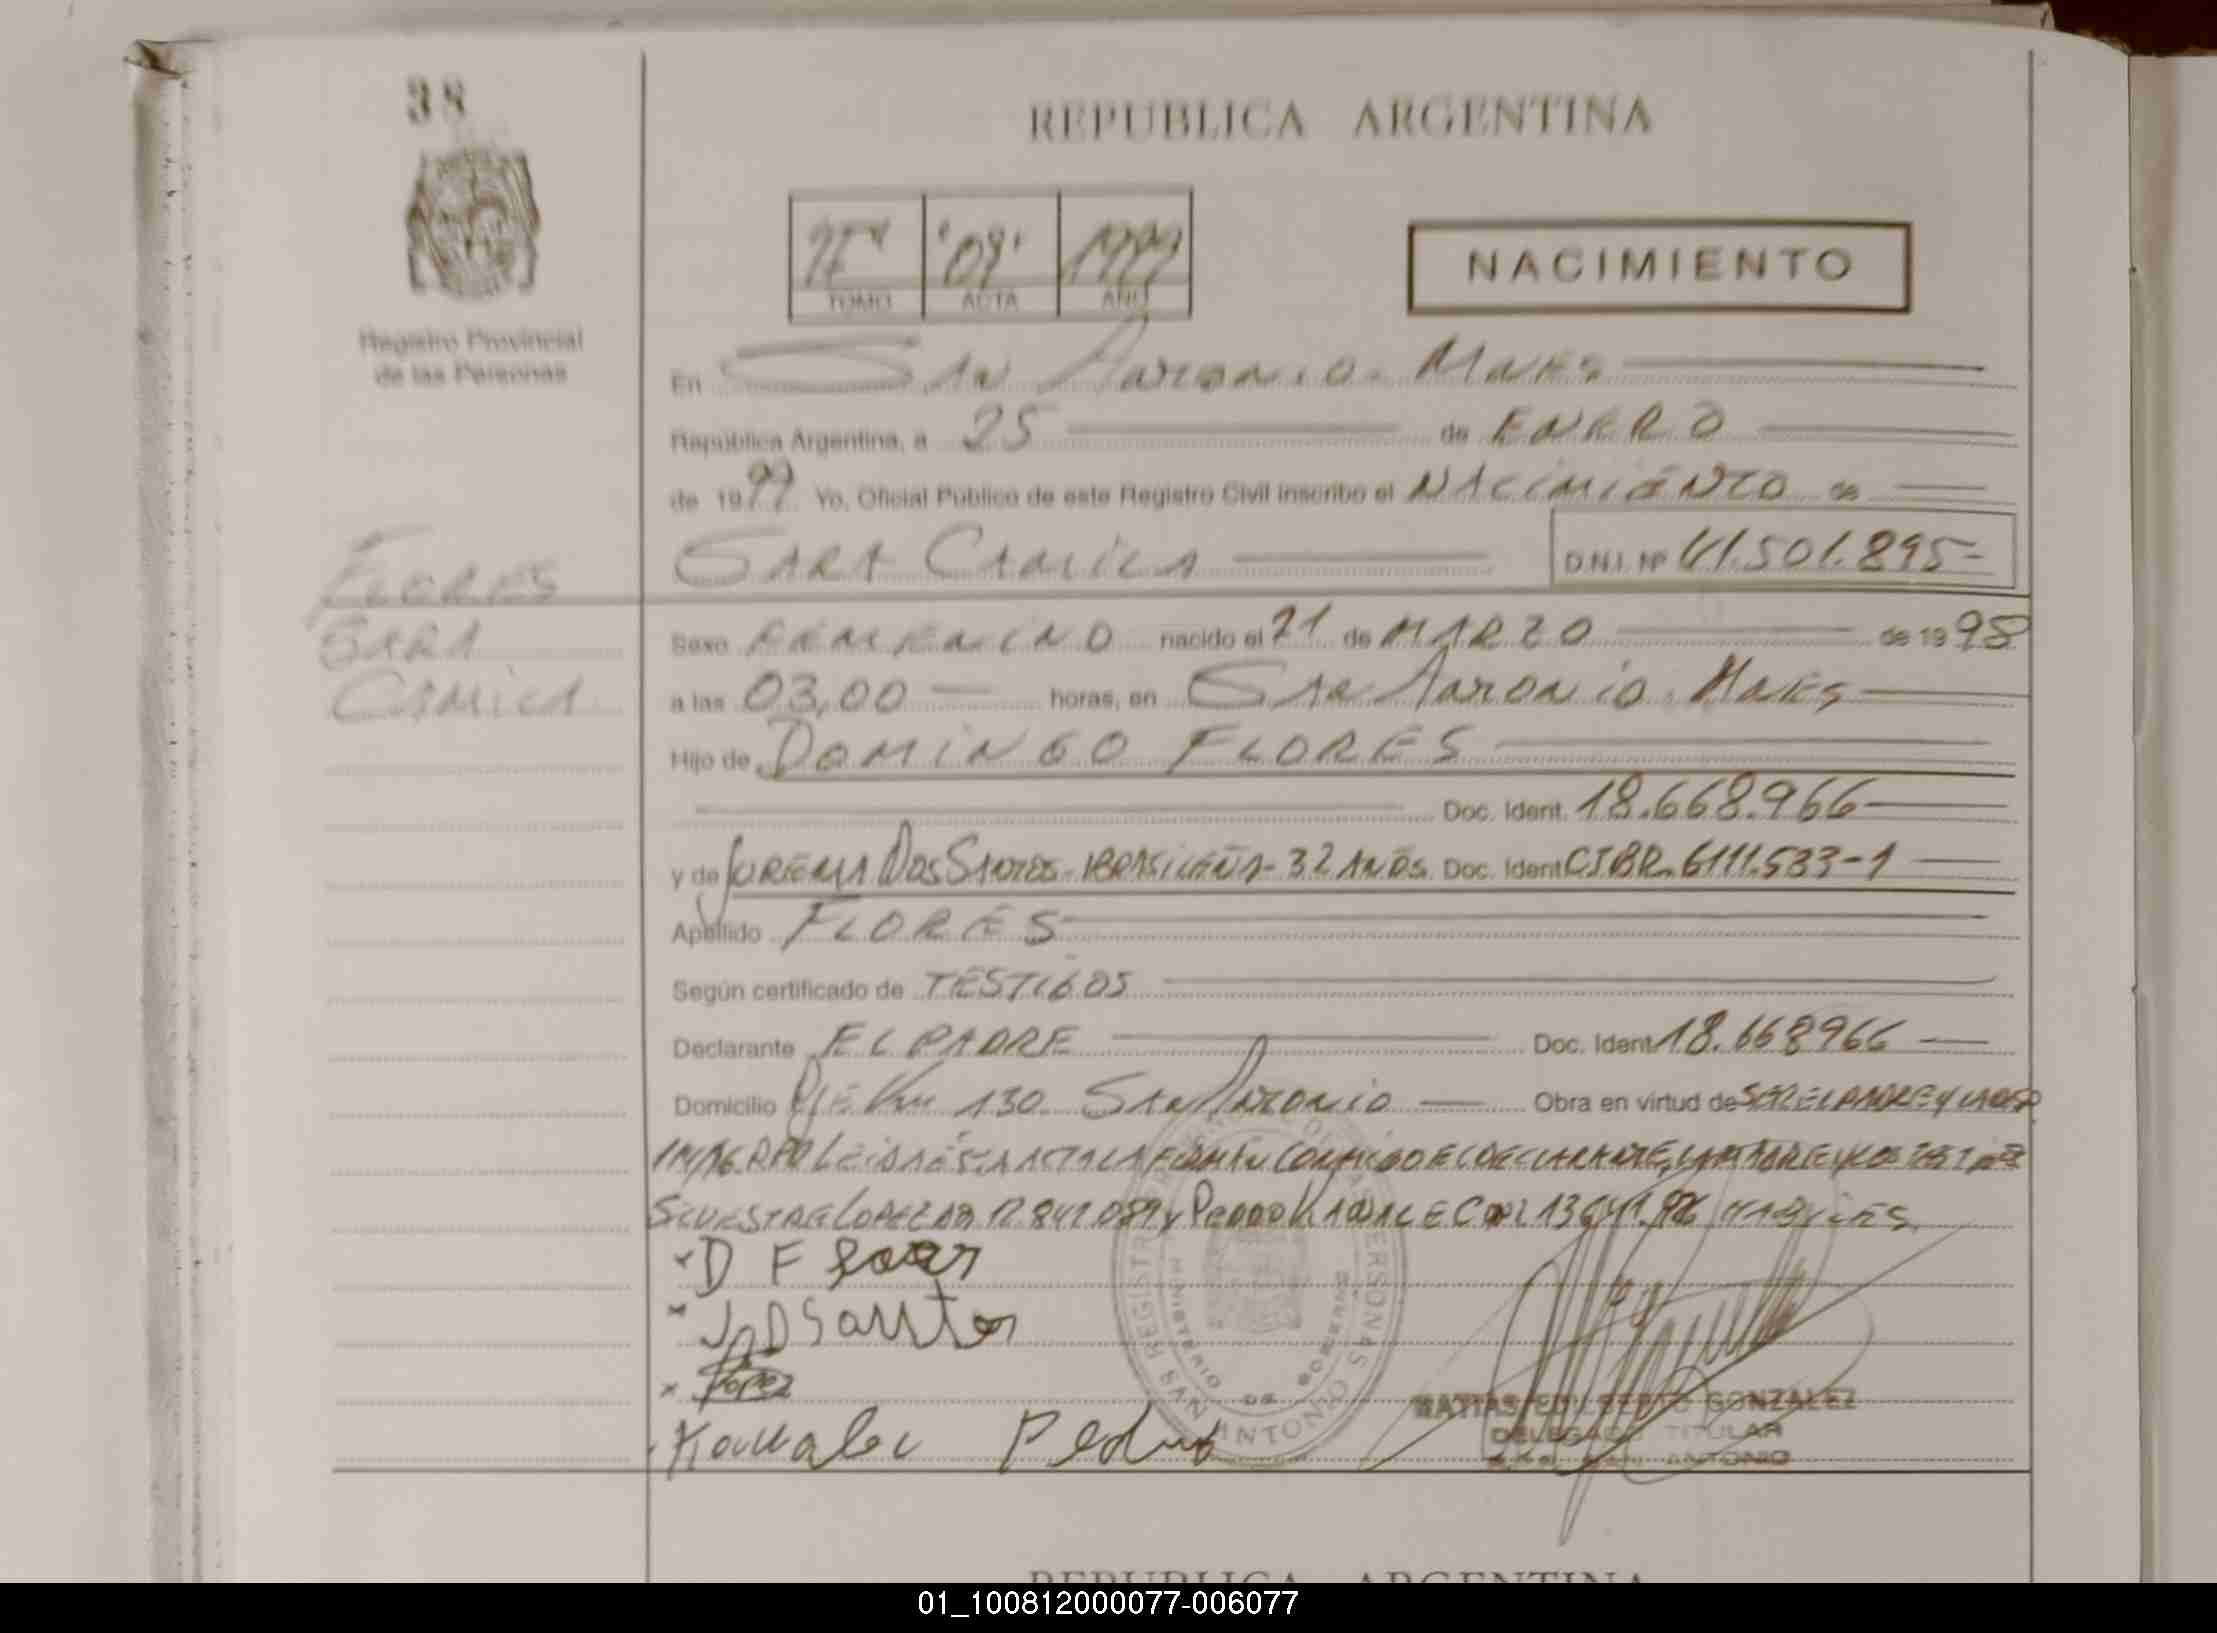 38
REPUBLICA ARGENTINA
'09' 1999
TOMO ACTA AÑO
NACIMIENTO
Registro Provincial
de las Personas
En San Antonio - Mnes
República Argentina, a 25 de ENERO
de 1999 Yo, Oficial Público de este Registro Civil inscribo el NACIMIENTO de
FLORES
SARA
CAMILA
SARA CAMILA D.N.I. Nº 41.501.895-
Sexo FEMENINO nacido el 21 de MARZO de 1998
a las 03,00 horas, en San Antonio - Mnes
Hijo de DOMINGO FLORES
Doc. Ident. 18.668.966
y de JUREMA DOS SANTOS - BRASILEÑA - 32 AÑOS. Doc. Ident CIBR. 6111.533-1
Apellido FLORES
Según certificado de TESTIGOS
Declarante EL PADRE Doc. Ident 18.668966
Domicilio Km 130 San Antonio Obra en virtud de SER EL PADRE Y
LEIDA ESTA ACTA LA FIRMAN CONMIGO EL DECLARANTE, LA MADRE Y LOS TESTIGOS
LOPEZ Y PEDRO
x D F
x J D Santos
x Lopez
Pedro
REGISTRO PERSONAS
MINISTERIO DE GOBIERNO
SAN ANTONIO
MATIAS EDILBERTO GONZALEZ
DELEGADO TITULAR
ANTONIO
REPUBLICA ARGENTINA
01_100812000077-006077